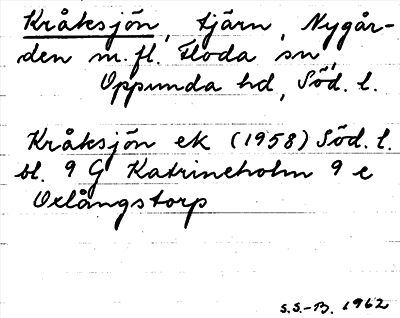 Kråksjön, tjärn, Nygår-
den m.fl. Floda sn,
Oppunda hd, Söd. l.
Kråksjön ek (1958) Söd. l.
bl. 9 G Katrineholm 9 e
Oxlångstorp
S.S.-B. 1962